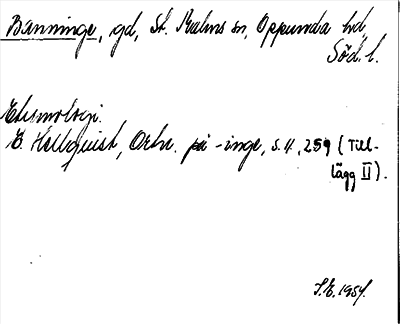 Banninge, gd, St. Malms sn, Oppunda hd,
Söd. l.
Etymologi.
E. Hellquist, Ortn. på -inge, s. 4, 259 (Till-
lägg II).
S.E. 1954.